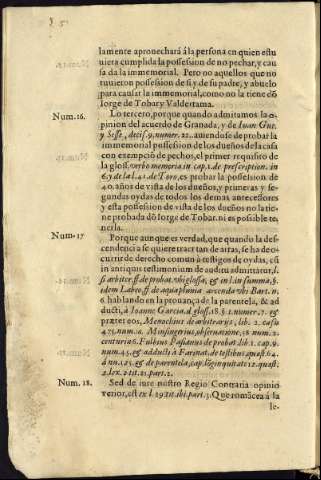 lamente aprouechará á la persona en quien estu
uiera cumplida la possession de no pechar, y cau
sada la immemorial. Pero no aquellos que no
tuuieron possession de si y de su padre, y abuelo
para causar la immemorial, como no la tiene dō
Iorge de Tobar y Valderrama.
Num. 16. Lo tercero, porque quando admitamos la o-
pinion del acuerdo de Granada, y de Iuan Gut.
y Sesse, decis. 9. numer. 22. auiendose de probar la
immemorial possession de los dueños de la casa
con exempciō de pechos, el primer requisito de
la gloss. verbo memoria in cap. 1. de præscription. in
6. y de la l. 41. de Toro, es probar la possession de
40. años de vista de los dueños, y primeras y se-
gundas oydas de todos los demas antecessores
y esta possession de vista de los dueños no la tie-
ne probada dō Iorge de Tobar, ni es possible te-
nerla.
Num. 17 Porque aunque es verdad, que quando la des-
cendencia se quiere tract tan de atras, se ha de o-
currir de derecho comun á testigos de oydas, cū
in antiquis testimonium de auditu admittatur, l.
si arbiter ff. de probat. vbi glossæ, & in l. in summa, §.
idem Labeo ff. de aqua pluuia arcenda vbi Bart. n.
6. hablando en la prouança de la parentela, & ad
ducti, á Ioanne Garcia. d. gloss. 18. §. 1. numer. 7. &
præter eos, Menochius de arbitrarijs, lib. 2. casu
475. num. 2. Minsingerius, obseruatione, 38. num. 2.
centuria 6. Fulbius Pasianus de probat. lib. 1. cap. 9.
num. 45. & adducti á Farinat. de testibus, quæst. 64.
á nu. 125. & de parentela, cap. longinquitate 12. quæst.
2. lex. 2. tit. 21. part. 2.
Num. 18. Sed de iure nostro Regio Contraria opinio
verior, est ex l. 29. tit. ibi. part. 3. Que romācea á la
le-